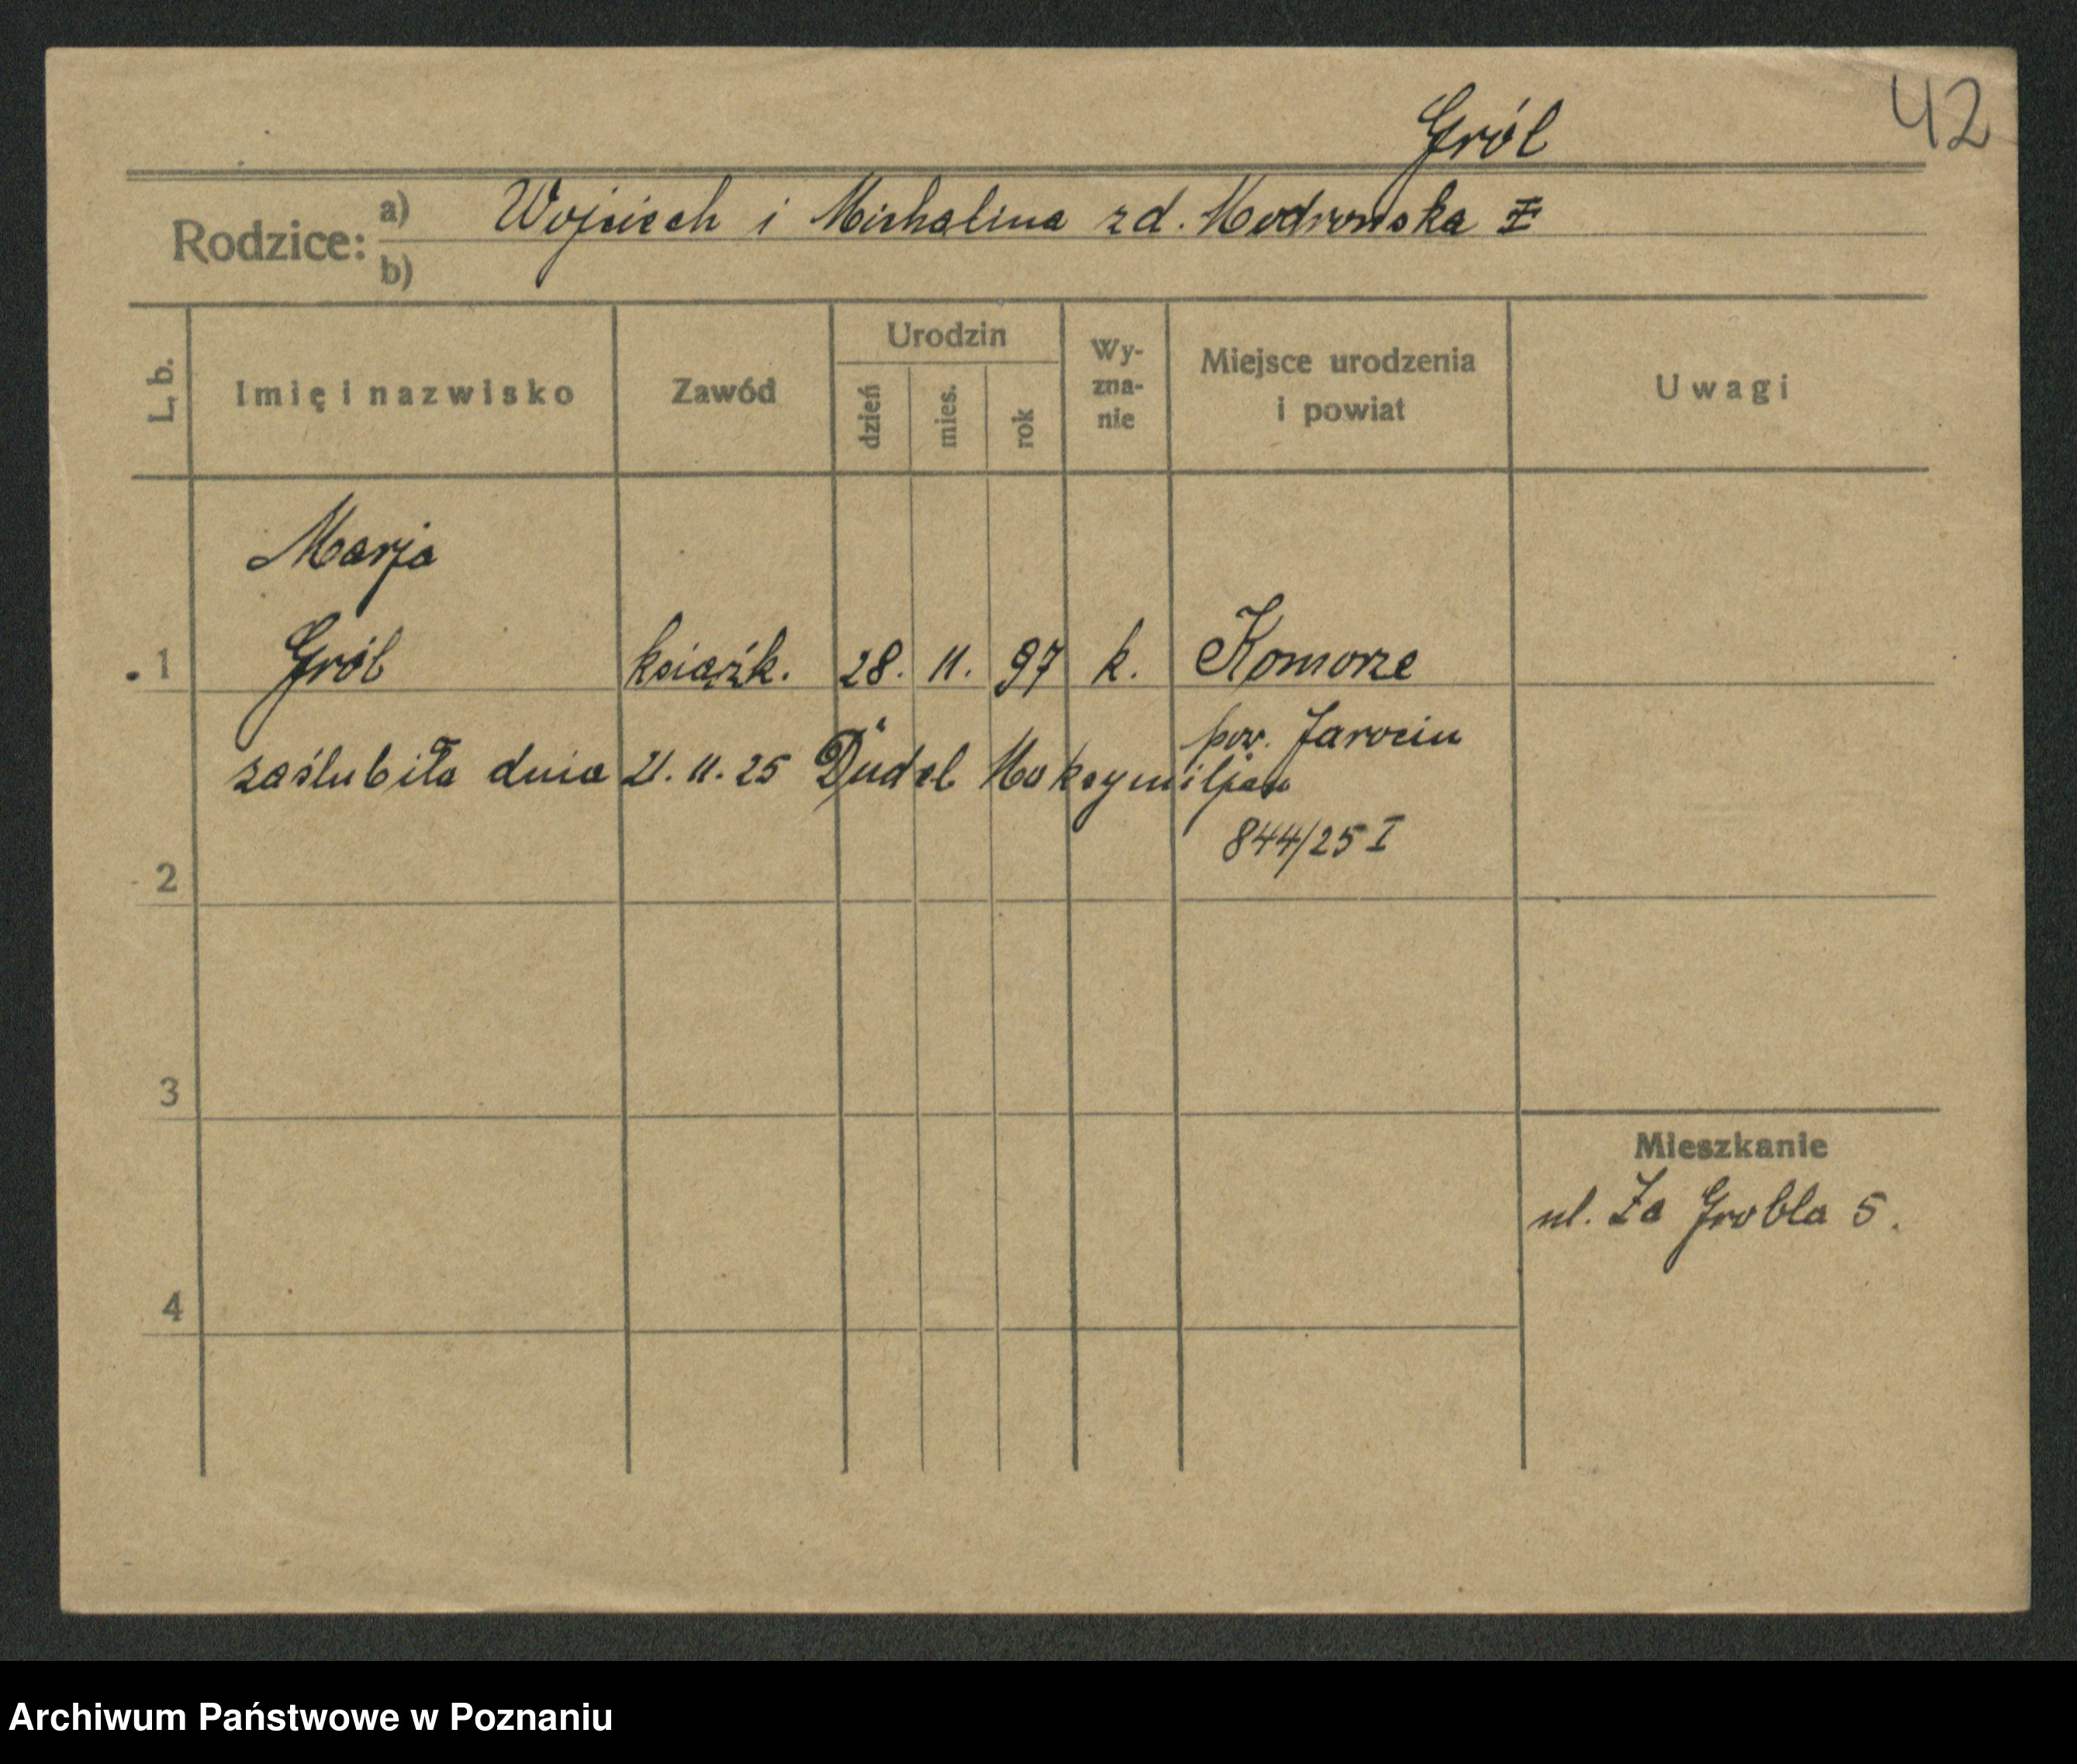 42
Gról
Rodzice: a) Wojciech i Michalina zd. Modrowska
b)
L. b.
Imię i nazwisko
Zawód
Urodzin
dzień
mies.
rok
Wy-
zna-
nie
Miejsce urodzenia
i powiat
Uwagi
Marja
1 Gról książk. 28. 11. 97 k. Komorze
pow. Jarocin
zaślubiła dnia 21. 11. 25 Düdel Maksymiljan
844/25 I
2
3
Mieszkanie
ul. Za Grobla 5.
4
Archiwum Państwowe w Poznaniu